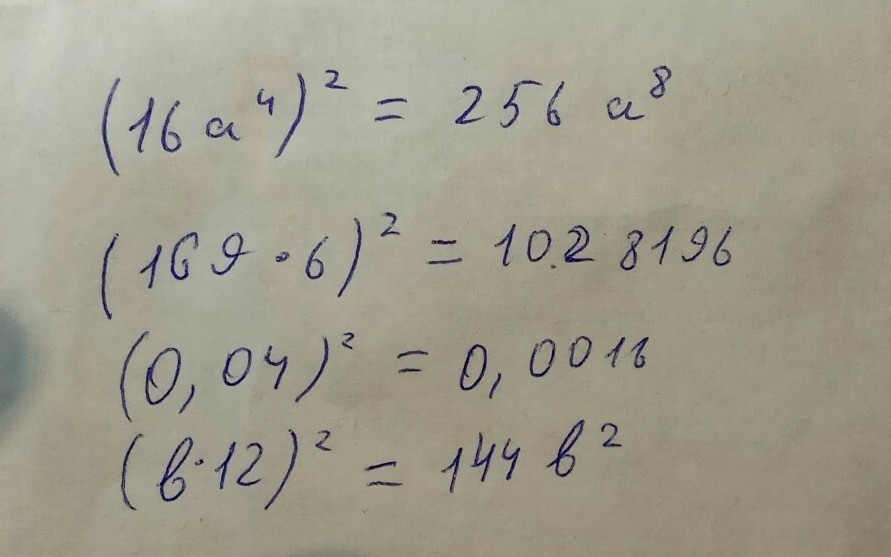 (16a⁴)² = 256 a⁸
(169 · 6)² = 1028196
(0,04)² = 0,0016
(b·12)² = 144 b²